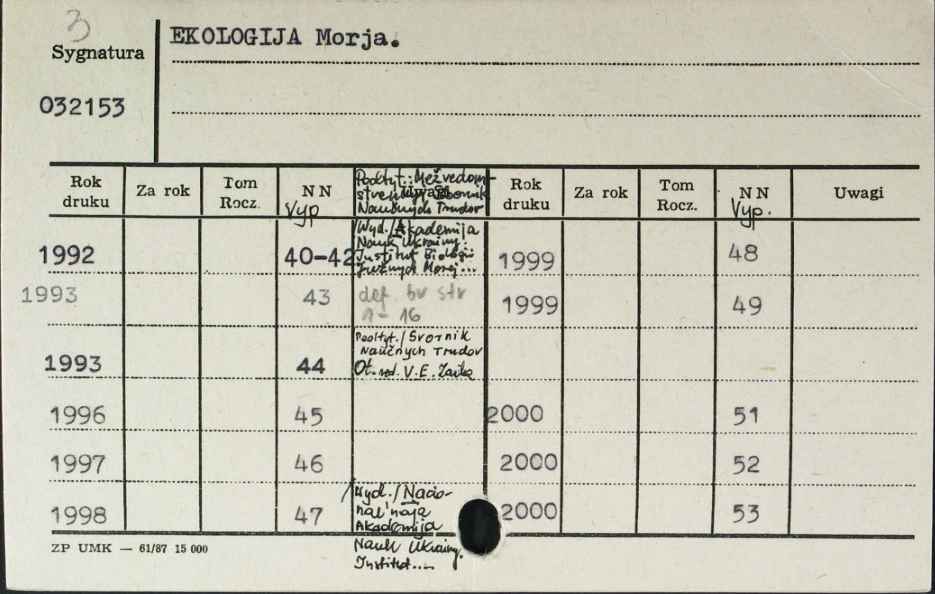 3
Sygnatura
032153
EKOLOGIJA Morja.
Rok druku Za rok Tom Rocz. NN Vyp Uwagi Rok druku Za rok Tom Rocz. NN Vyp. Uwagi
Podtyt.: Mežvedom-
stvennyj Sbornik
Naučnych Trudov
/Wyd./Akademija
Nauk Ukrainy.
Institut Biologii
Južnych Morej...
1992 40-42 1999 48
1993 43 def. br str 1999 49
1-16
Podtyt./Svornik
Naučnych Trudov
1993 44 Ot. red. V.E. Zaika
1996 45 2000 51
1997 46 2000 52
/Wyd./Nacio-
nal'naja
1998 47 Akademija 2000 53
Nauk Ukrainy.
Institut....
ZP UMK — 61/87 15 000